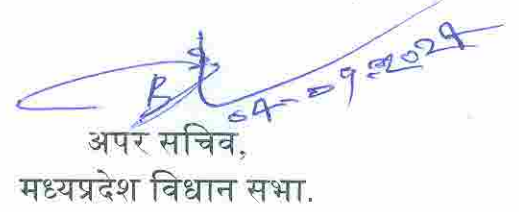 04-09-2024
अपर सचिव,
मध्यप्रदेश विधान सभा.